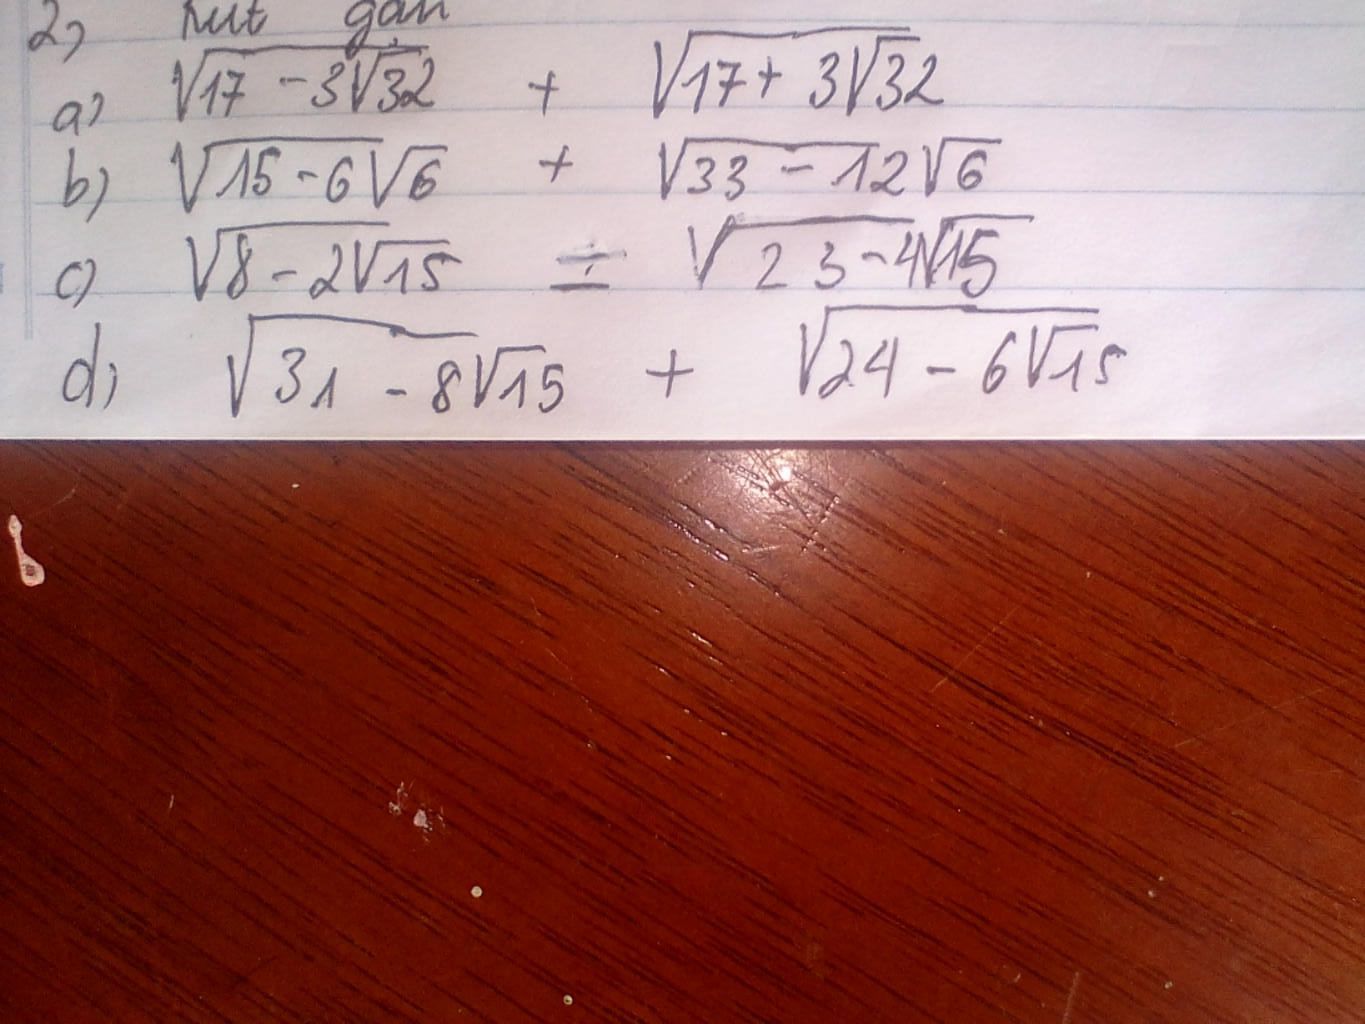 2, Rút gọn
a) √17 - 3√32 + √17 + 3√32
b) √15 - 6√6 + √33 - 12√6
c) √8 - 2√15 - √23 - 4√15
d) √31 - 8√15 + √24 - 6√15